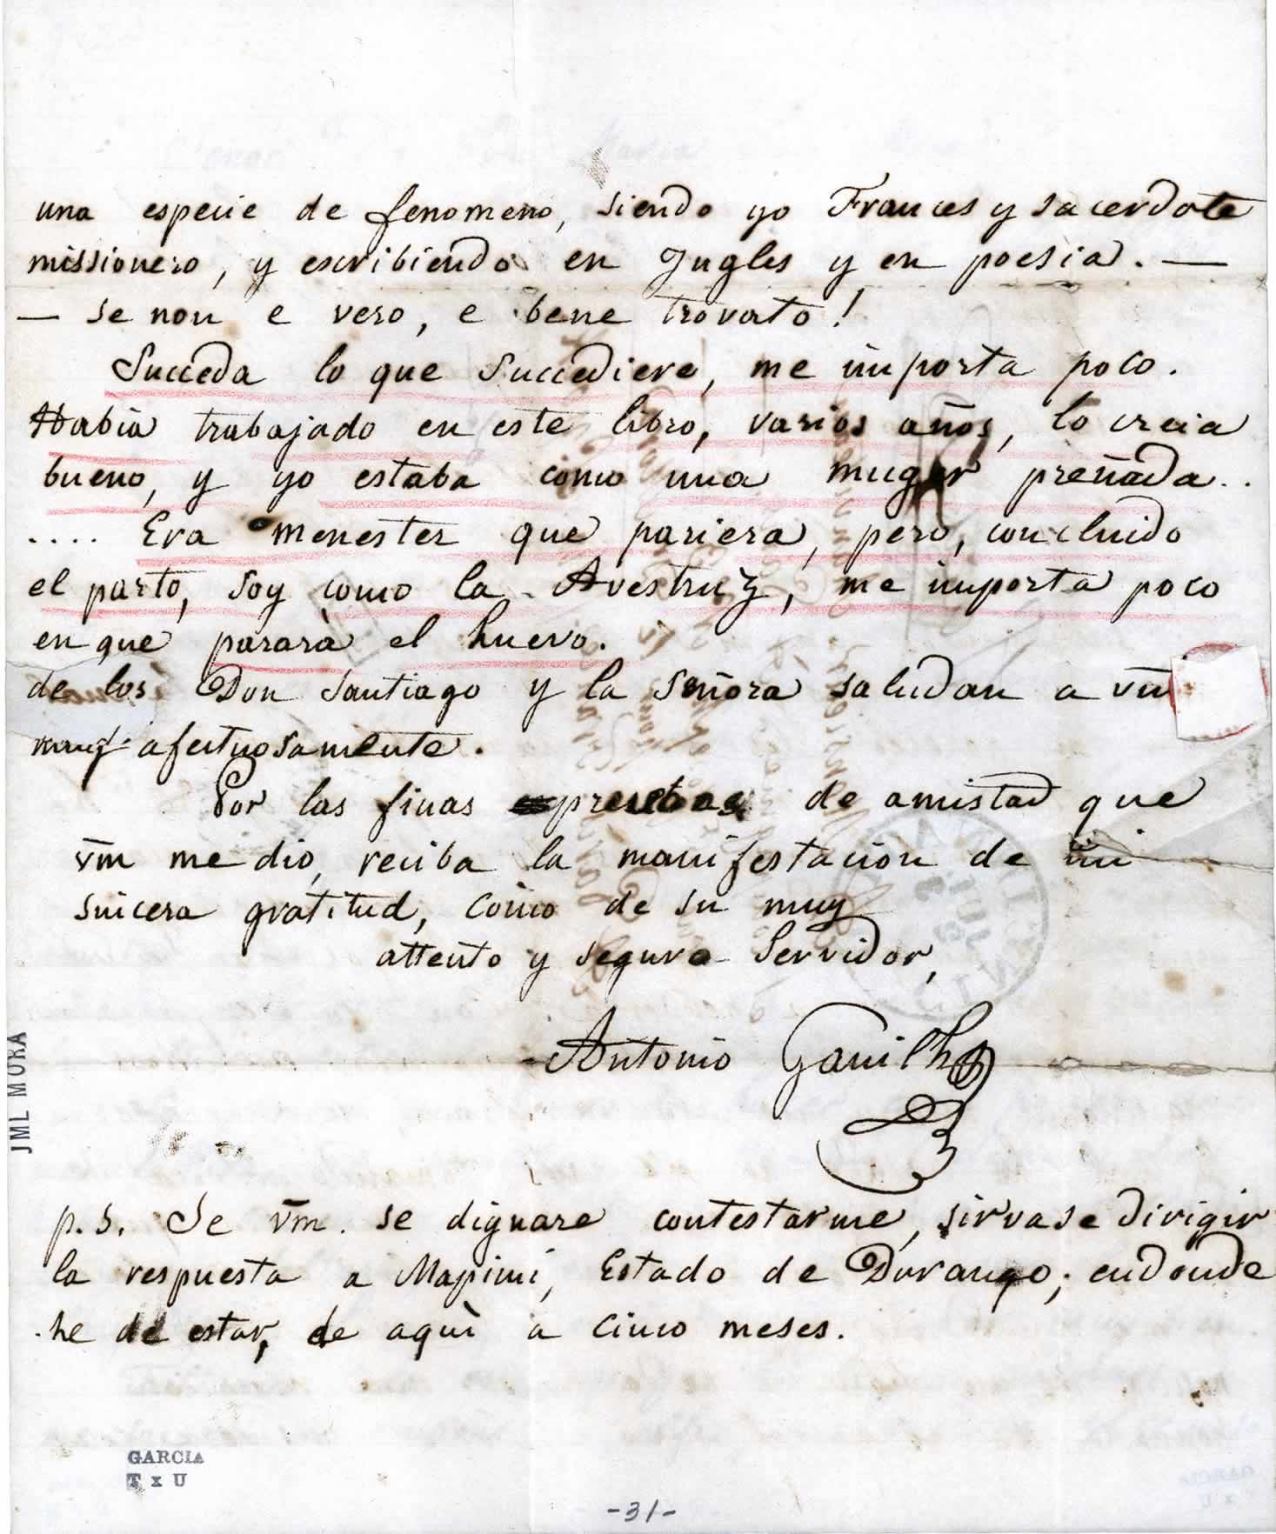 una especie de fenomeno, siendo yo Frances y sacerdote
missionero, y escribiendo en Ingles y en poesia. —
— se non e vero, e bene trovato!
Succeda lo que succediere, me importa poco.
Habia trabajado en este libro, varios años, lo creia
bueno, y yo estaba como una muger preñada..
.... Era menester que pariera, pero, concluido
el parto, soy como la Avestruz, me importa poco
en que pararà el huevo.
de los Don Santiago y la Señora saludan a vm̄
muy afectuosamente.
Por las finas de amistad que
vm̄ me dio, reciba la manifestacion de mi
sincera gratitud, como de su muy
attento y seguro Servidor,
Antonio Ganilh
p.s. Se vm̄. se dignare contestarme, sirvase dirigir
la respuesta a Mapimi, Estado de Durango; endonde
he de estar, de aqui a cinco meses.
JML MORA
GARCIA
T x U
-31-